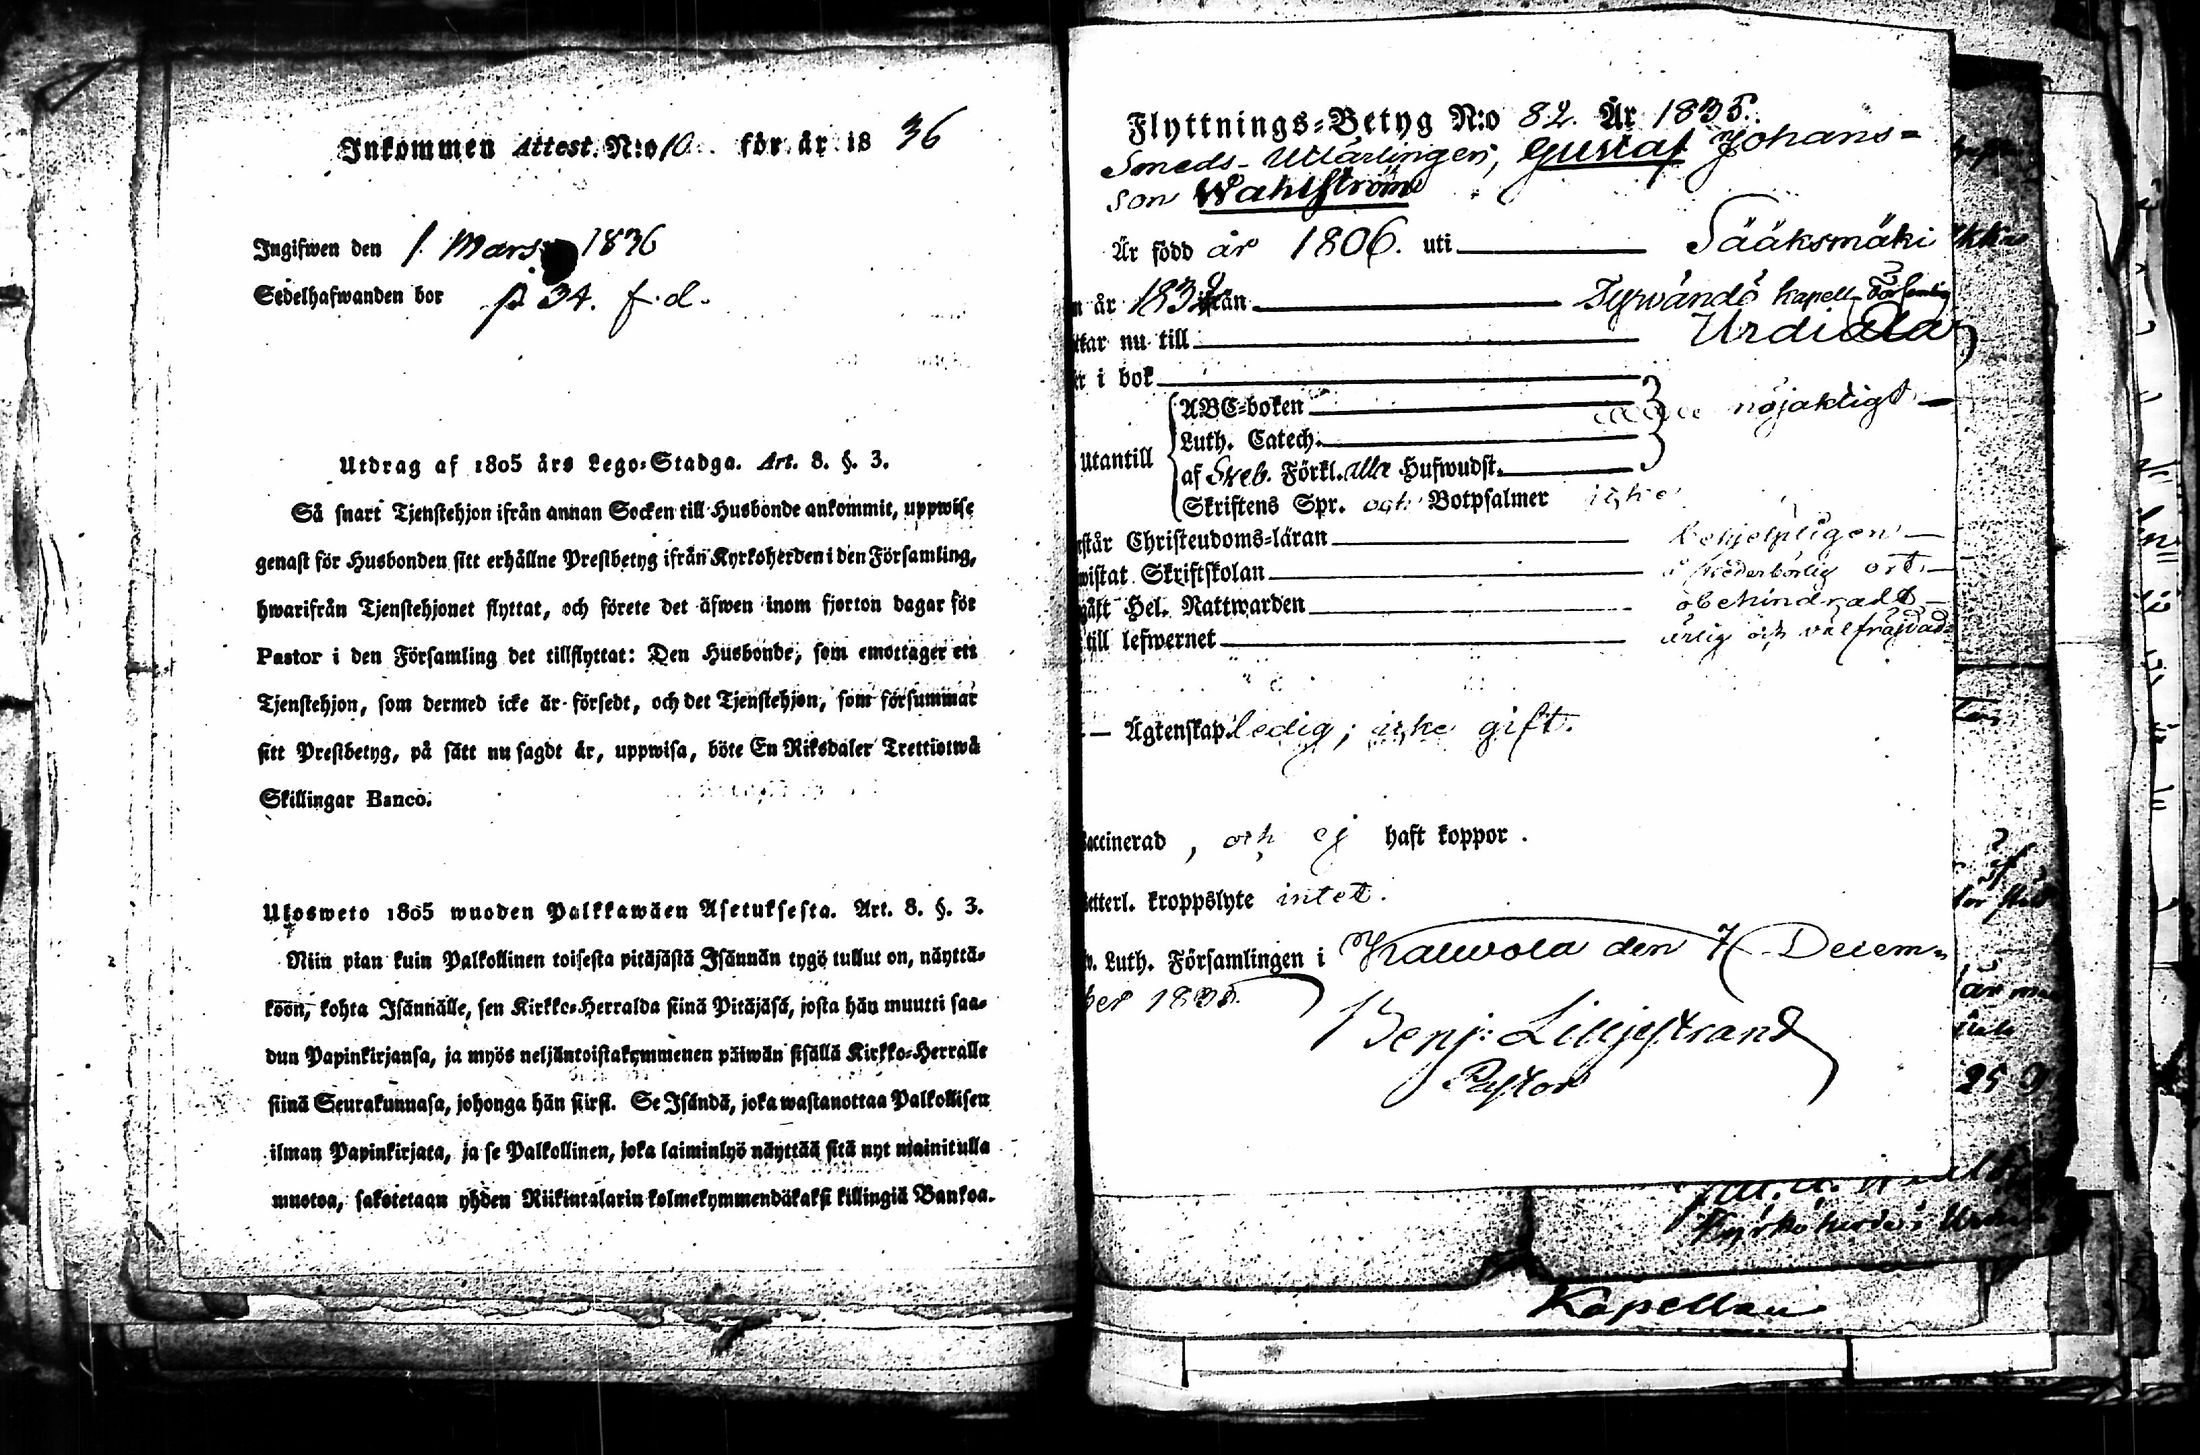 Inkommen Attest. N:o 10. för år 1836
Ingifwen den 1 Mars 1836
Sedelhafwanden bor p 34. f.d.
Utdrag af 1805 års Lego-Stadga. Art. 8. §. 3.
Så snart Tjenstehjon ifrån annan Socken till Husbonde ankommit, uppwise
genast för Husbonden sitt erhållne Prestbetyg ifrån Kyrkoherden i den Församling,
hwarifrån Tjenstehjonet flyttat, och förete det äfwen inom fjorton dagar för
Pastor i den Församling det tillflyttat: Den Husbonde, som emottager ett
Tjenstehjon, som dermed icke är försedt, och det Tjenstehjon, som försummar
sitt Prestbetyg, på sätt nu sagdt är, uppwisa, böte En Riksdaler Trettiotwå
Skillingar Banco.
Ulosweto 1805 wuoden Palkkawäen Asetuksesta. Art. 8. §. 3.
Niin pian kuin Palkollinen toisesta pitäjästä Isännän tygö tullut on, näyttä-
köön, kohta Isännälle, sen Kirkko-Herralda siinä Pitäjäsä, josta hän muutti saa-
dun Papinkirjansa, ja myös neljäntoistakymmenen päiwän sisällä Kirkko-Herralle
siinä Seurakunnasa, johonga hän siirsi. Se Isändä, joka wastanottaa Palkollisen
ilman Papinkirjata, ja se Palkollinen, joka laiminlyö näyttää sitä nyt mainitulla
muotoa, sakotetaan yhden Riikintalarin kolmekymmendäkaksi killingiä Bankoa.
Flyttnings-Betyg N:o 82. År 1835.
Smeds-Utlärlingen, Gustaf Johans-
son Wahlström
Är född år 1806. uti Sääksmäki
n år 1832 ifrån Tyrwändö kapell Församling
ttar nu till Urdiala
r i bok
ABC-boken
nöjaktigt
Luth. Catech.
Utantill
af Sveb. Förkl. alla Hufwudst.
Skriftens Spr. och Botpsalmer icke
rstår Christendoms-läran behjelpligen
wistat Skriftskolan å wederbörlig ort.
gått Hel. Nattwarden obehindradt
till lefwernet ärlig och välfräjdad
Ägtenskap ledig; icke gift.
accinerad, och ej haft koppor.
etterl. kroppslyte intet.
v. Luth. Församlingen i Kalwola den 7 Decem-
ber 1835.
Benj: Lilljestrand
Pastor
Kapellan